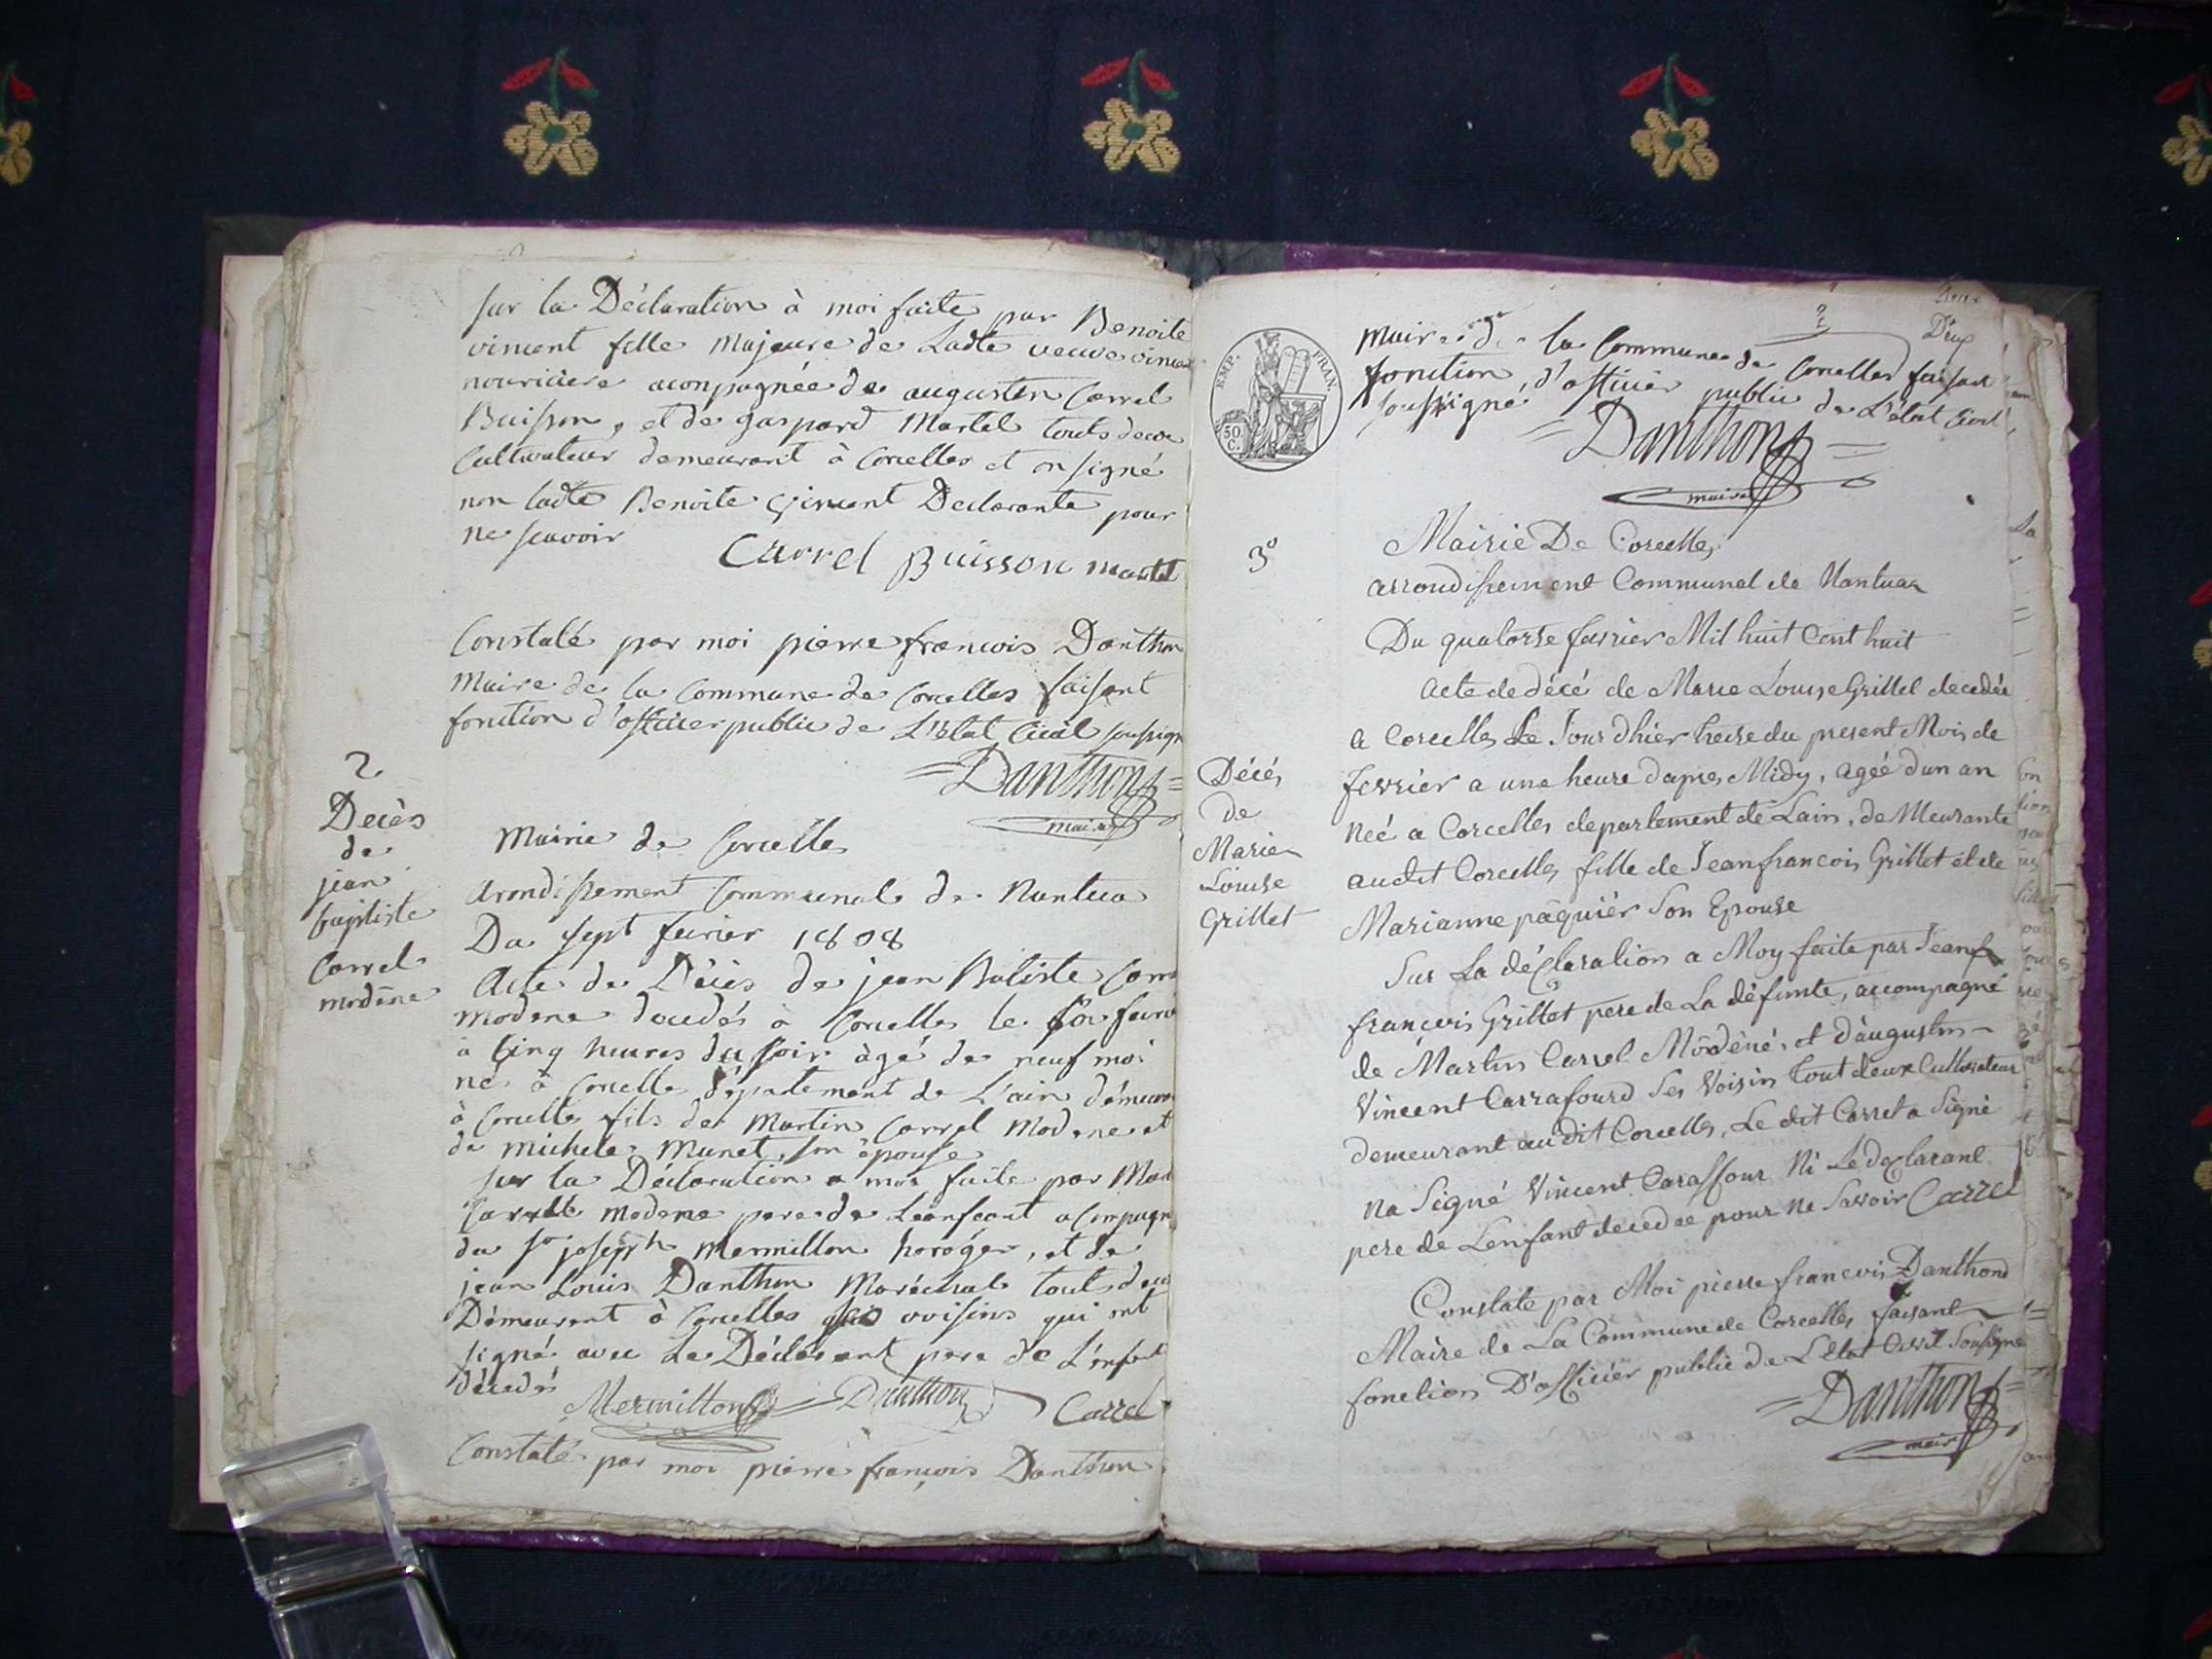 sur la Déclaration à moi faite par Benoite
vincent fille Majeure de Ladte veuve vincent
nouriciere aconpagnée de augusten Carrel
Buisson, et de gaspard Martel touts deux
Cultivateur demeurant à Corcelles et on signé
non ladte Benoite vincent Declarante pour
ne scavoir
Carrel Buisson martel
Constalé par moi pierre francois Danthon
Maire de la Commune de Corcelles faisant
fonction d'officier public de L'Etat Civil soussign
=Danthon=
maire
2
Decès
de
jean
baptiste
Carrel
modène
Mairie de Corcelles
Arondissement Communale de Nantua
Du sept fevrier 1808
Acte de Décès de jean Batiste Carr
modene decedés à Corcelles le
à Cinq heures du soir àgé de neuf moi
né à Corcelle département de L'ain démeura
à Corcelle fils de Martin Carrel Modene et
de Michele Munet, son épouse
sur la Déclaration a moi faite par Mar
Carrel modene pere de Leanfeant aCompagn
du Sr joseph Mermillon horoger, et de
jean Louis Danthon Maréchal touts deu
Démeurent à Corcelles ses voisins qui ont
signé avec Le Déclarent pere de L'enfent
décedé
Mermillon = Danthon Carrel
Constaté par moi pierre françois Danthon
2
Deux
EMP. FRAN.
50
C.
Maire de la Commune de Corcelles faisant
fonction d'officier public de L'état Civil
soussigné,
=Danthon=
maire
3º
Mairie De Corcelles
arrondissement Communal de Nantua
Du quatorse fevrier Mil huit Cent huit
Décés
de
Marie
Louise
Grillet
acte de décé de Marie Louise Grillet decedée
a Corcelles Le Jour dhier treise du present Mois de
fevrier a une heure dapres Midy, agée dun an
neé a Corcelles departement de Lain, de Meurante
audit Corcelles fille de Jean francois Grillet et de
Marianne pâquiér Son Epouse
Sur La déclaration a Moy faite par Jean
françois Grillet pere de La défunte, accompagné
de Martin Carrel Modéné, et d'augustin
Vincent Carrafourd Ses Voisin tout deux Cultivateur
demeurant audit Corcelles, Le dit Carrel a Signé
na Signé Vincent Carassour Ni Le declarant
pere de Lenfant decedée pour ne Savoir Carrel
Constate par Moi pierre francois Danthond
Maire de La Commune de Corcelles faisant
fonction D'officiér public de L'état Civil Sousigné
=Danthon=
maire